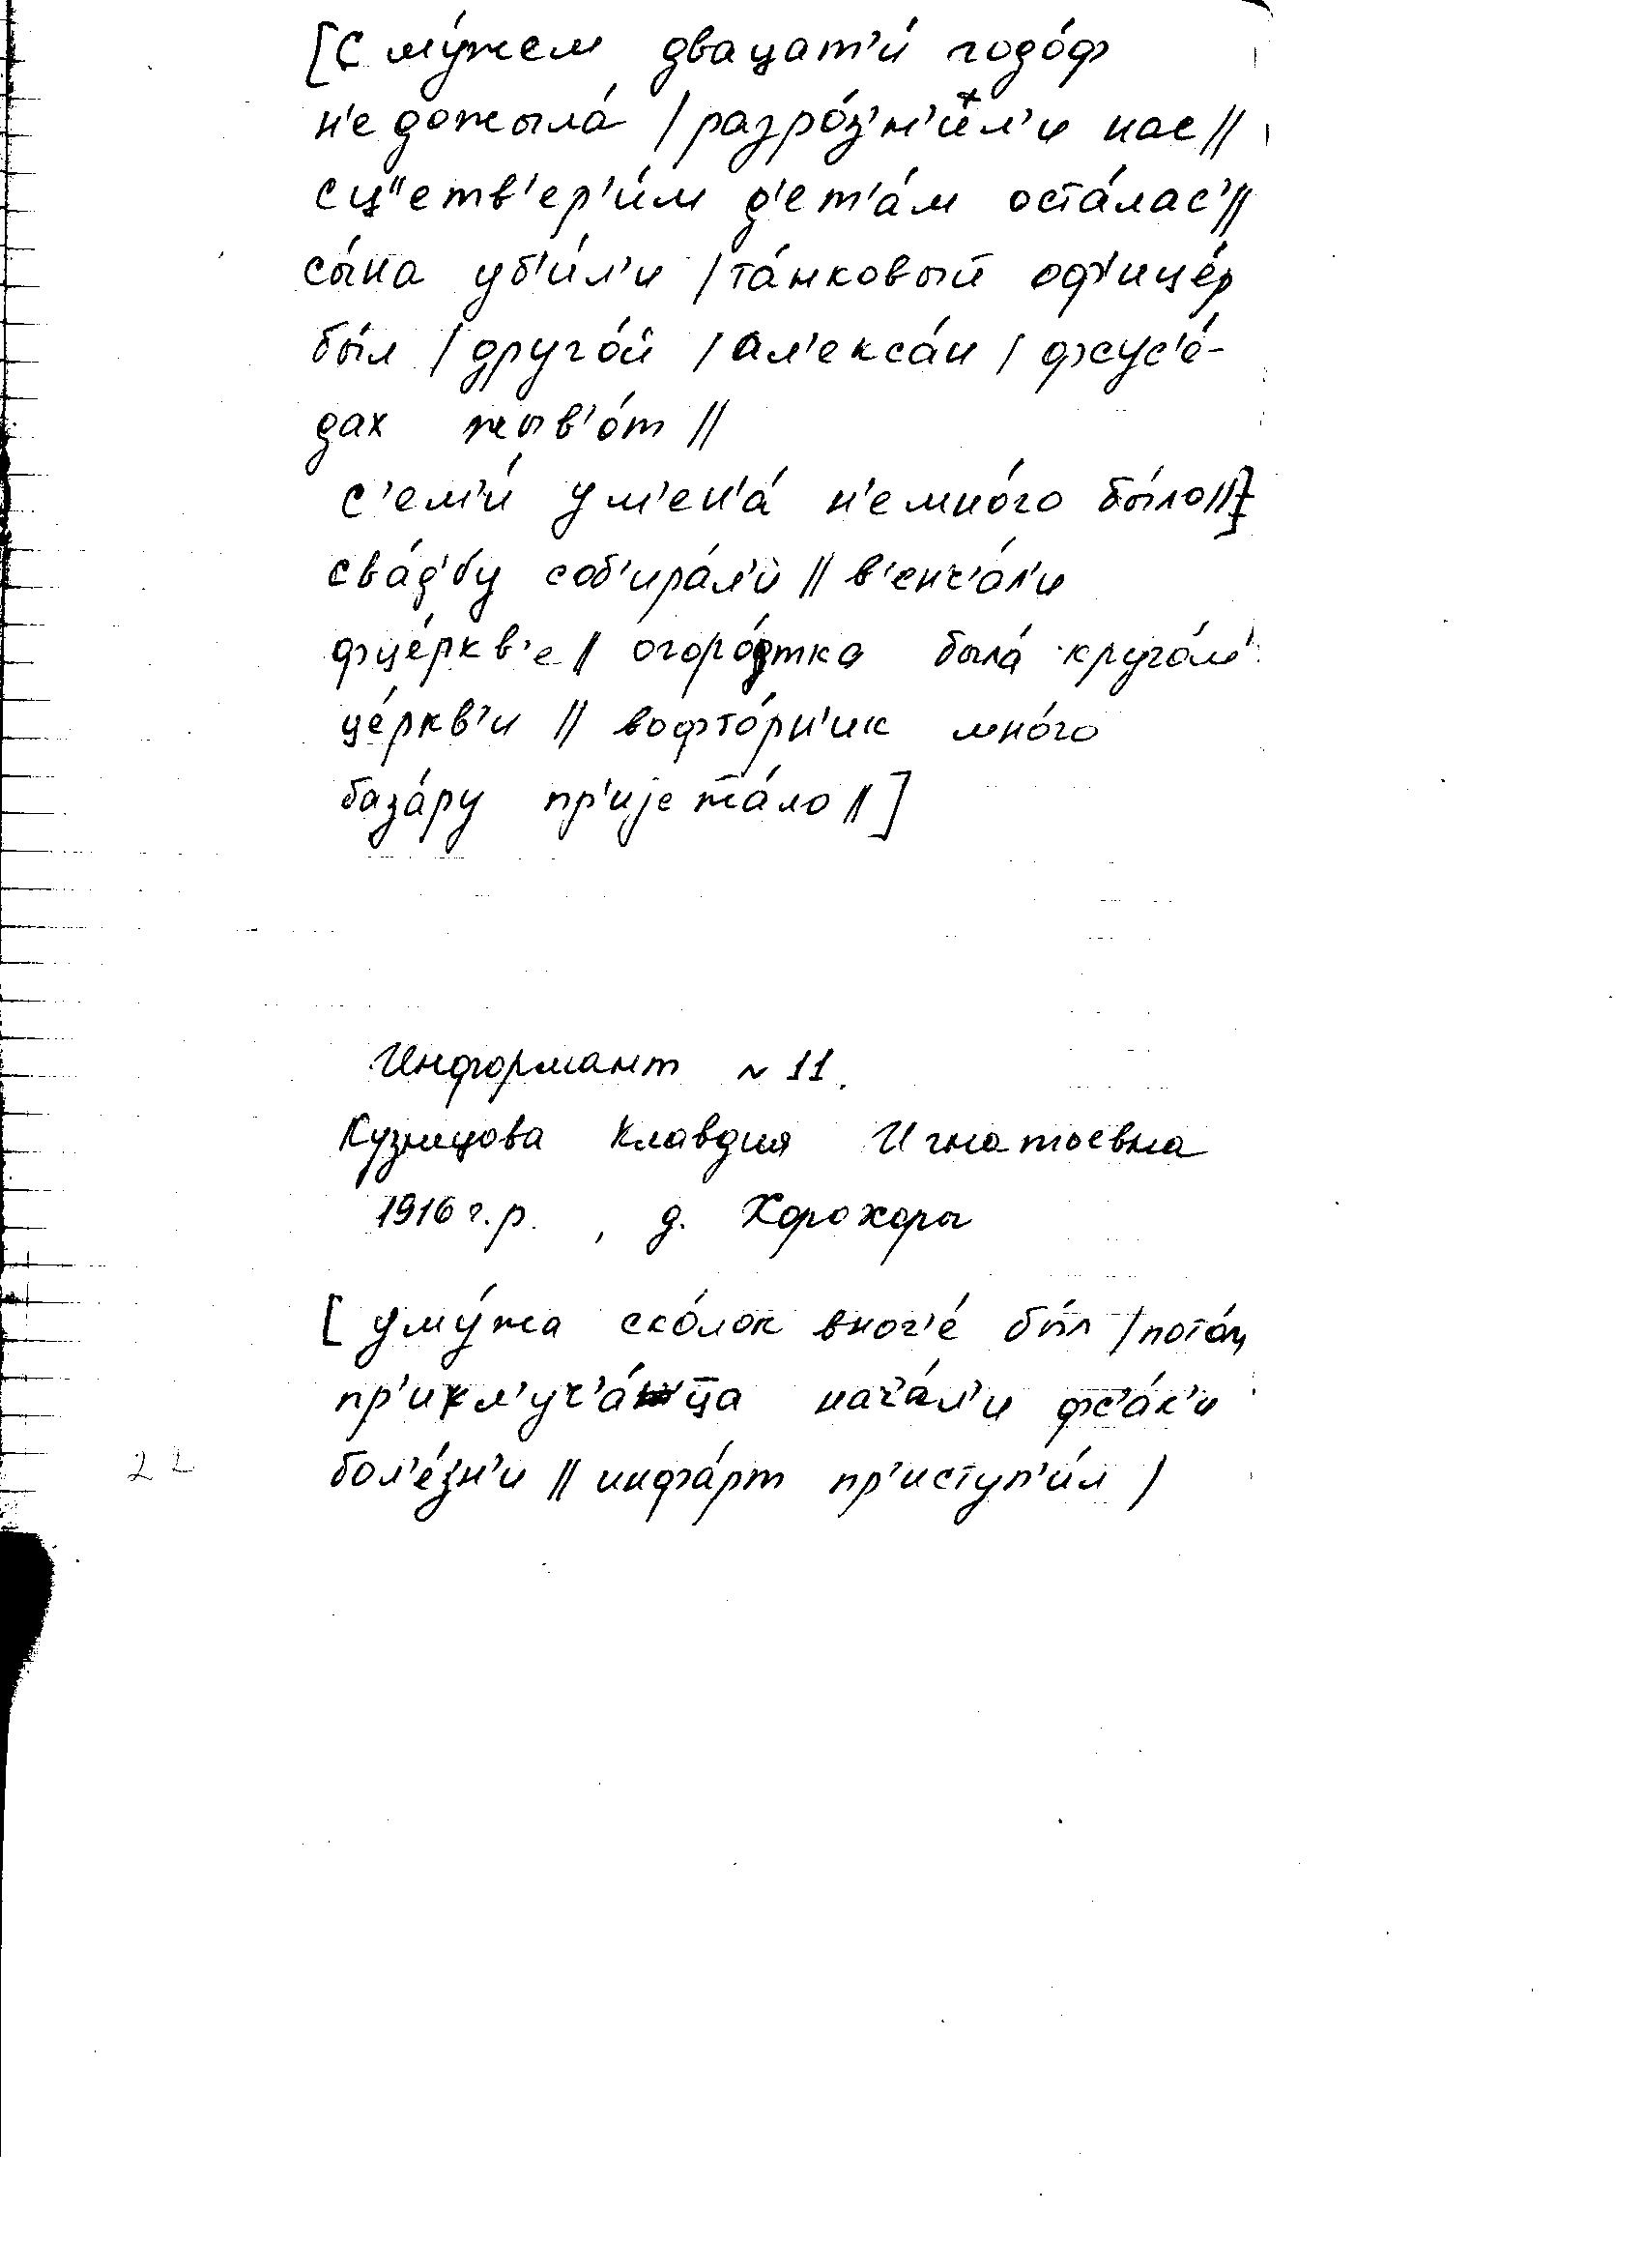 [с му́жем двацат'и́ годо́ф
н'е дожыла́ / разро́з'н'ил'и нас //
сц"етв'ер'и́м д'ет'а́м оста́лас' //
сы́на уб'и́л'и / та́нковый оф'ице́р
бы́л / друго́й / ал'екса́н / фсус'е́-
дах жыв'о́т //
с'ем'и́ ум'ен'а́ н'емно́го бы́ло // ]
сва́д'бу соб'ира́л'и // в'енч'а́л'и
фце́ркв'е // огоро́тка была́ круго́м
це́ркв'и // вофто́рн'ик мно́го
база́ру пр'ијежа́ло // ]
Информант № 11.
Кузницова Клавдия Игнатьевна
1916 г.р. , д. Хорохоры
[ уму́жа ско́лок вног'е́ бы́л / пото́м
пр'икл'уч'а́ца нач'а́л'и фс'а́к'и
бол'е́зн'и // инфа́рт пр'иступ'и́л /
22